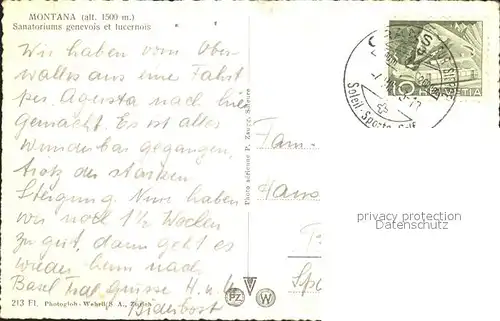 MONTANA (alt. 1500 m.)
Sanatoriums genevois et lucernois
Wir haben vom Ober-
wallis aus eine Fahrt
per. nach hier
gemacht. Es ist alles
wunderbar gegangen,
trotz der starken
Steigung. Nun haben
wir noch 1½ Wochen
zu gut, dann geht es
wieder heim nach
Basel Frdl. Grüsse H. u.
Biderbost
213 Fl. Photoglob-Wehrli S. A., Zürich
Photo aérienne P. Zaugg, Soleure
PZ W
CRANS
SUR SIERRE
Soleil-Sports-Golf
10 HELVETIA
Fam.
privacy protection
Datenschutz